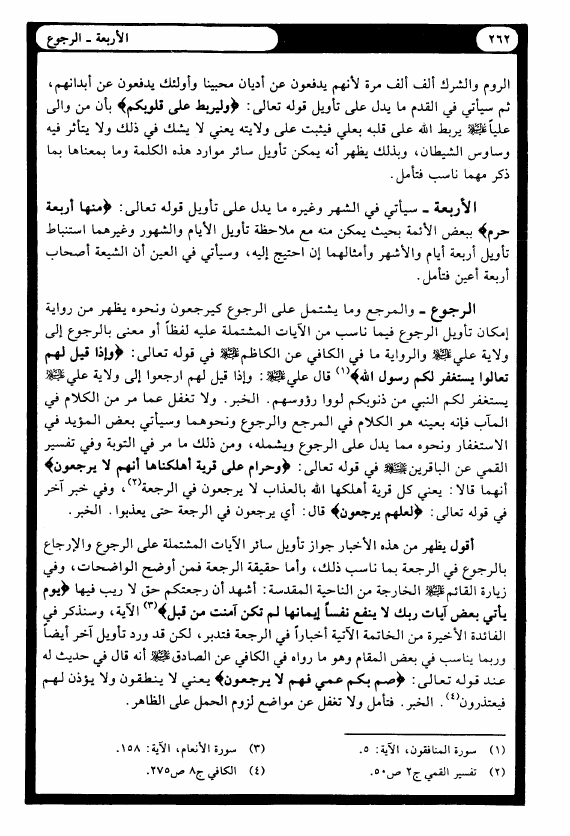 ٢٦٢
الأربعة ـ الرجوع
الروم والشرك ألف ألف مرة لأنهم يدفعون عن أديان محبينا وأولئك يدفعون عن أبدانهم،
ثم سيأتي في القدم ما يدل على تأويل قوله تعالى: ﴿وليربط على قلوبكم﴾ بأن من والى
علياً ﷺ يربط الله على قلبه بعلي فيثبت على ولايته يعني لا يشك في ذلك ولا يتأثر فيه
وساوس الشيطان، وبذلك يظهر أنه يمكن تأويل سائر موارد هذه الكلمة وما بمعناها بما
ذكر مهما ناسب فتأمل.
الأربعة ـ سيأتي في الشهر وغيره ما يدل على تأويل قوله تعالى: ﴿منها أربعة
حرم﴾ ببعض الأئمة بحيث يمكن منه مع ملاحظة تأويل الأيام والشهور وغيرهما استنباط
تأويل أربعة أيام والأشهر وأمثالهما إن احتيج إليه، وسيأتي في العين أن الشيعة أصحاب
أربعة أعين فتأمل.
الرجوع ـ والمرجع وما يشتمل على الرجوع كيرجعون ونحوه يظهر من رواية
إمكان تأويل الرجوع فيما ناسب من الآيات المشتملة عليه لفظاً أو معنى بالرجوع إلى
ولاية علي والرواية ما في الكافي عن الكاظم في قوله تعالى: ﴿وإذا قيل لهم
تعالوا يستغفر لكم رسول الله﴾(١) قال علي : وإذا قيل لهم ارجعوا إلى ولاية علي
يستغفر لكم النبي من ذنوبكم لووا رؤوسهم. الخبر. ولا تغفل عما مر من الكلام في
المآب فإنه بعينه هو الكلام في المرجع والرجوع ونحوهما وسيأتي بعض المؤيد في
الاستغفار ونحوه مما يدل على الرجوع ويشمله، ومن ذلك ما مر في التوبة وفي تفسير
القمي عن الباقرين في قوله تعالى: ﴿وحرام على قرية أهلكناها أنهم لا يرجعون﴾
أنهما قالا: يعني كل قرية أهلكها الله بالعذاب لا يرجعون في الرجعة(٢)، وفي خبر آخر
في قوله تعالى: ﴿لعلهم يرجعون﴾ قال: أي يرجعون في الرجعة حتى يعذبوا. الخبر.
أقول يظهر من هذه الأخبار جواز تأويل سائر الآيات المشتملة على الرجوع والإرجاع
بالرجوع في الرجعة بما ناسب ذلك، وأما حقيقة الرجعة فمن أوضح الواضحات، وفي
زيارة القائم الخارجة من الناحية المقدسة: أشهد أن رجعتكم حق لا ريب فيها ﴿يوم
يأتي بعض آيات ربك لا ينفع نفساً إيمانها لم تكن آمنت من قبل﴾(٣) الآية، وسنذكر في
الفائدة الأخيرة من الخاتمة الآتية أخباراً في الرجعة فتدبر، لكن قد ورد تأويل آخر أيضاً
وربما يناسب في بعض المقام وهو ما رواه في الكافي عن الصادق أنه قال في حديث له
عند قوله تعالى: ﴿صم بكم عمي فهم لا يرجعون﴾ يعني لا ينطقون ولا يؤذن لهم
فيعتذرون(٤). الخبر. فتأمل ولا تغفل عن مواضع لزوم الحمل على الظاهر.
(١) سورة المنافقون، الآية: ٥.
(٢) تفسير القمي ج٢ ص٥٠.
(٣) سورة الأنعام، الآية: ١٥٨.
(٤) الكافي ج٨ ص٢٧٥.